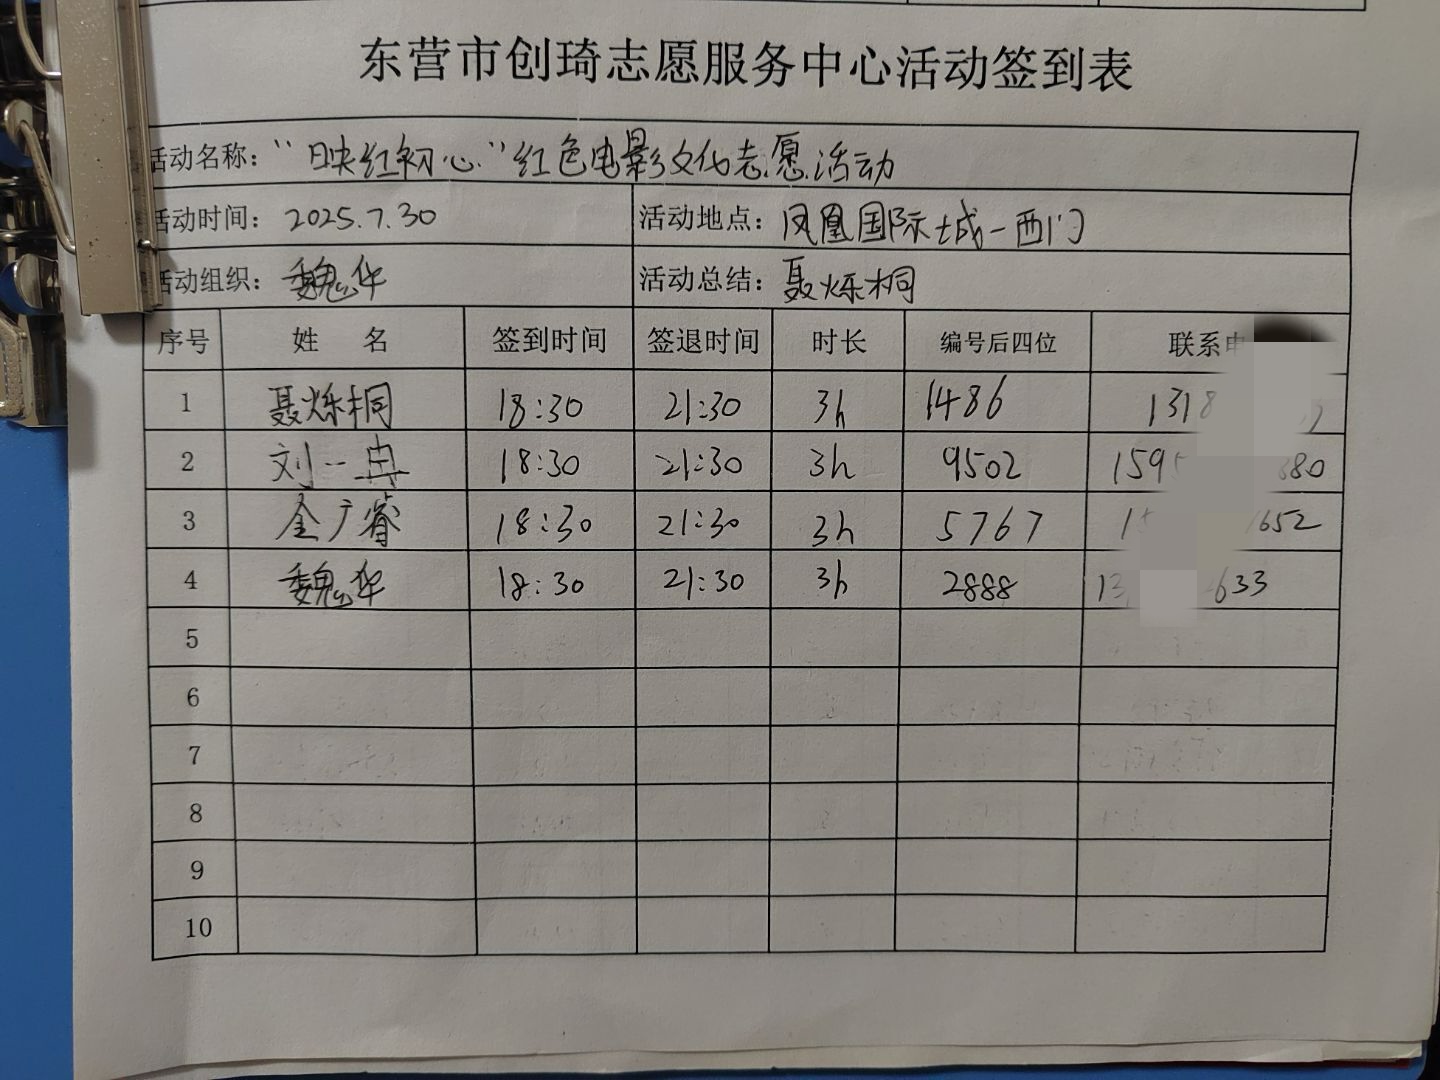 东营市创琦志愿服务中心活动签到表
活动名称：“映红初心”红色电影文化志愿活动
活动时间：2025.7.30 活动地点：凤凰国际城-西门
活动组织：魏华 活动总结：聂烁桐
序号 姓 名 签到时间 签退时间 时长 编号后四位 联系电
1 聂烁桐 18:30 21:30 3h 1486 1318
2 刘一冉 18:30 21:30 3h 9502 1595 880
3 金广睿 18:30 21:30 3h 5767 15 1652
4 魏华 18:30 21:30 3h 2888 13 633
5
6
7
8
9
10